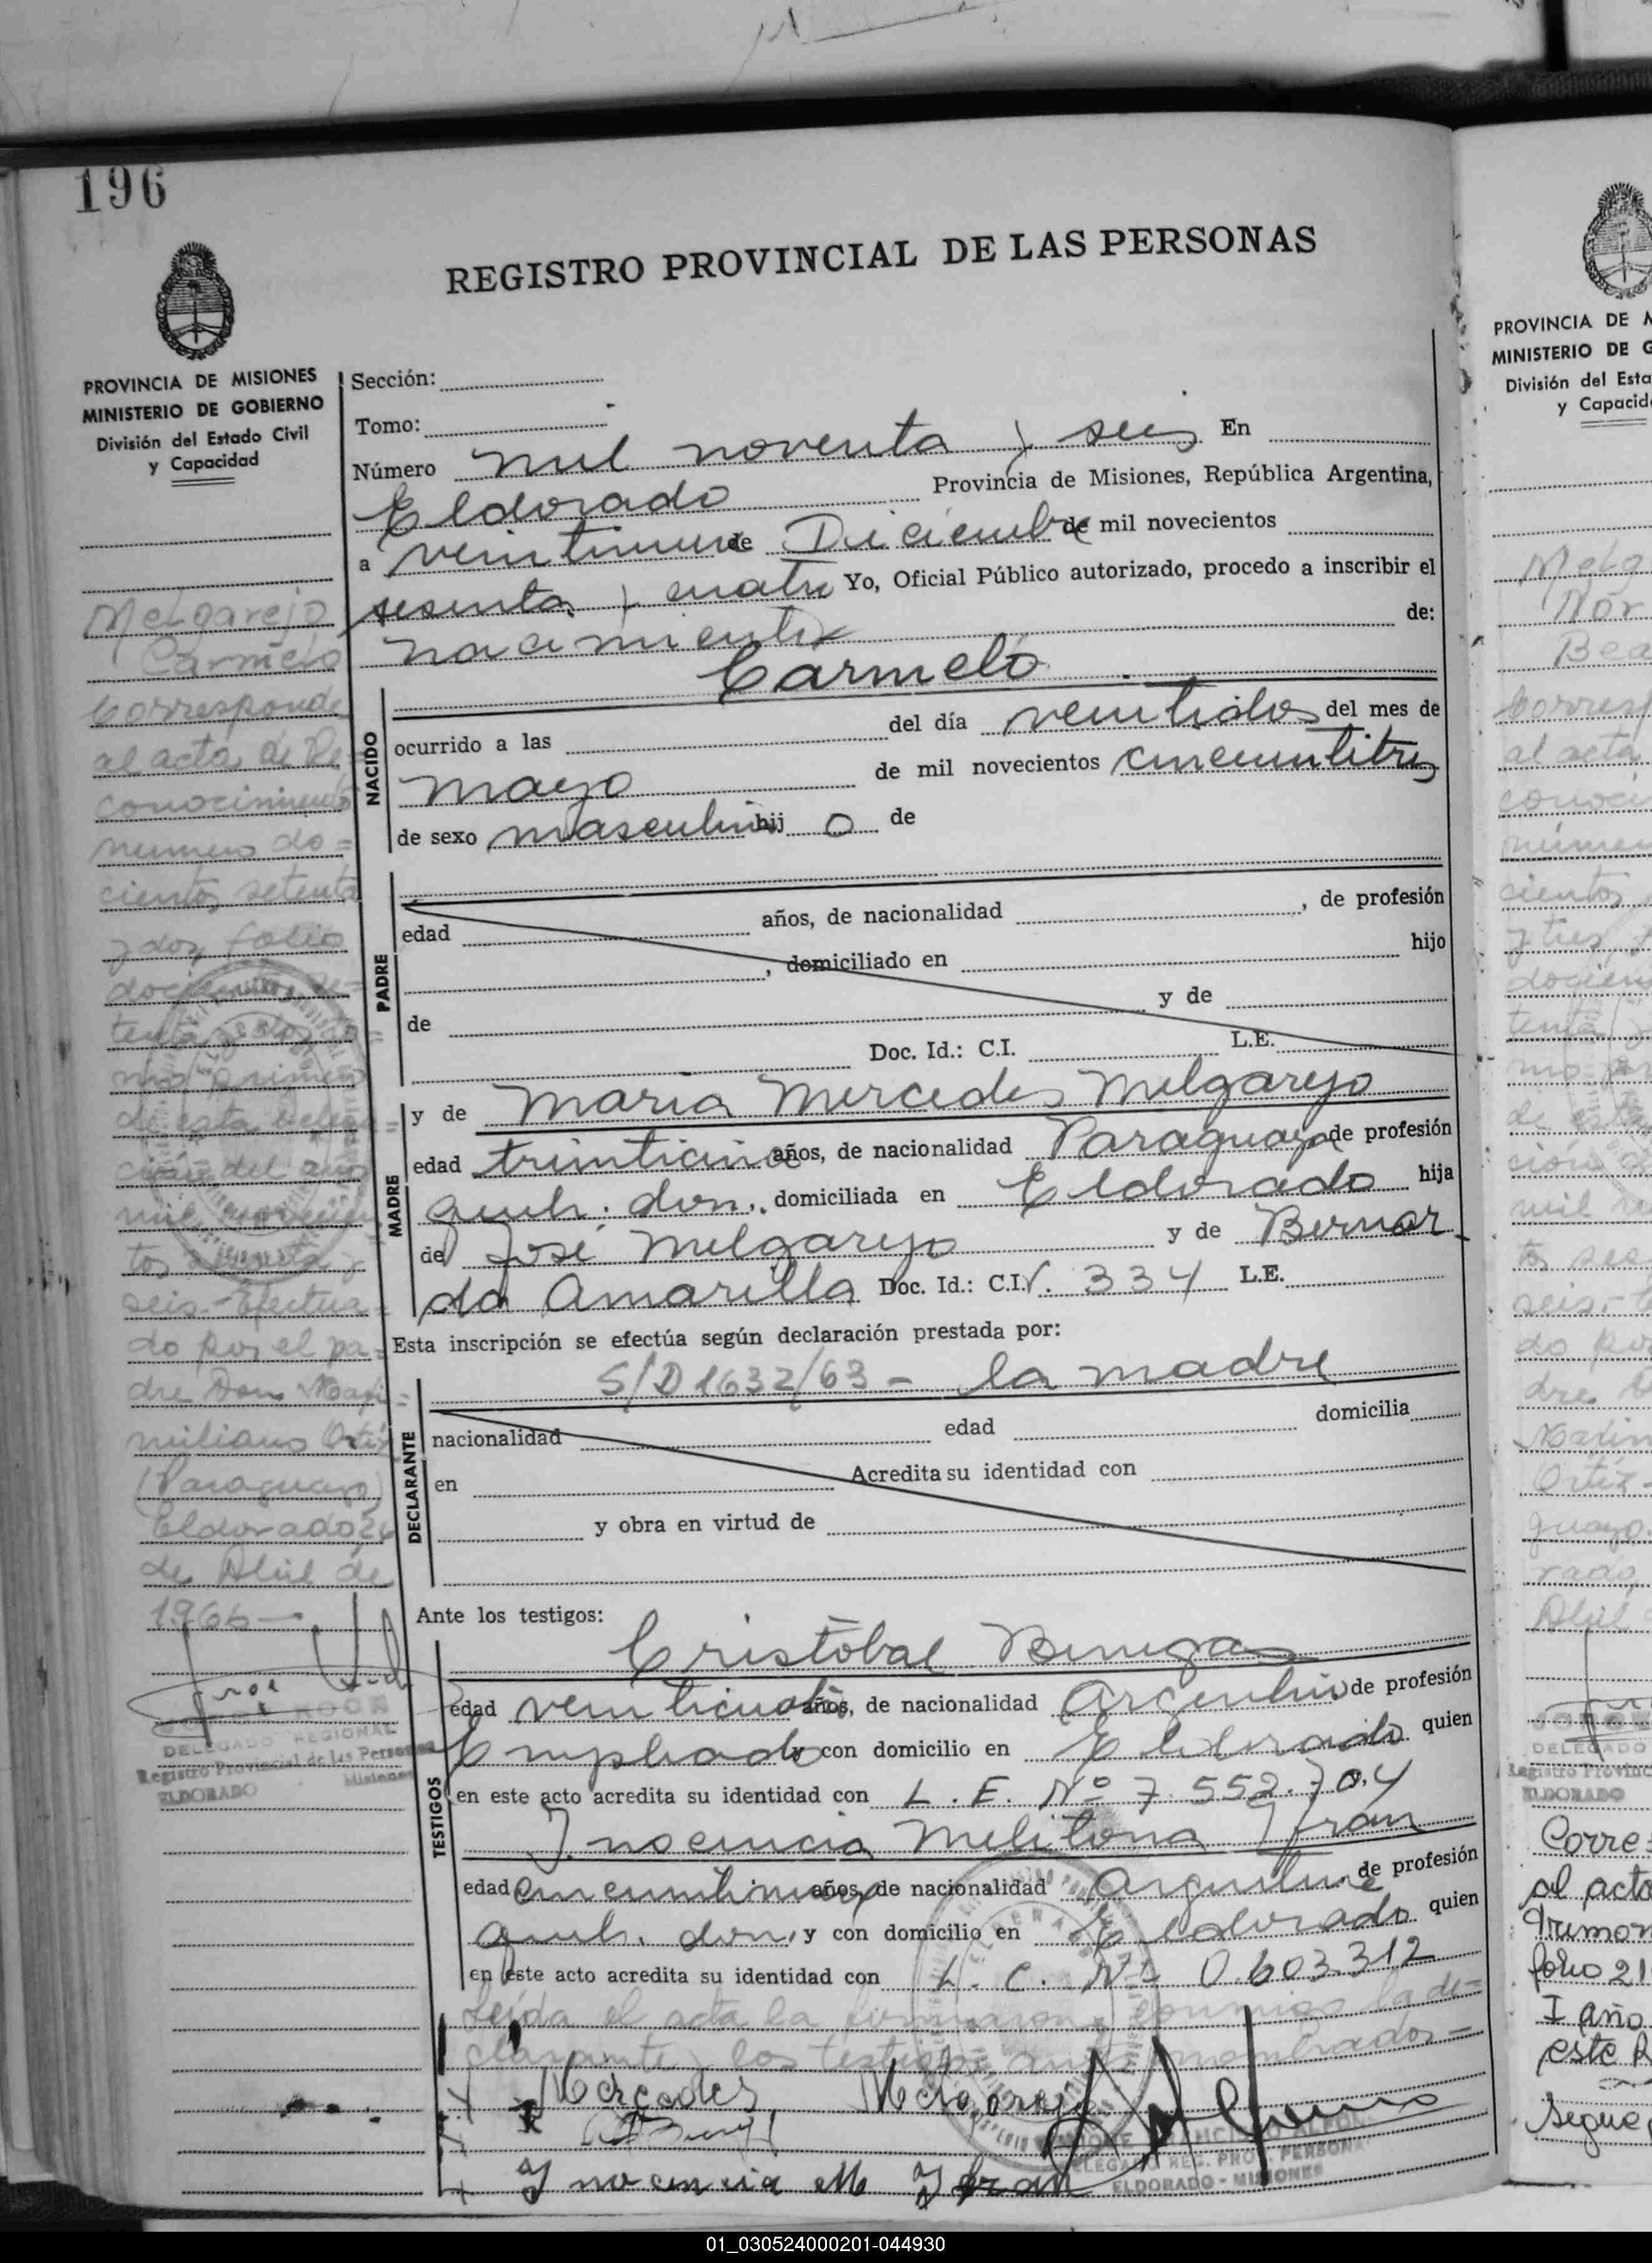 196
REGISTRO PROVINCIAL DE LAS PERSONAS
PROVINCIA DE MISIONES
MINISTERIO DE GOBIERNO
División del Estado Civil
y Capacidad
Melgarejo
Carmelo
Corresponde
al acta de Re=
conocimiento
numero do=
cientos setenta
y dos, folio
docientos se=
tenta y dos to
mo primero
de esta delega=
ción del año
mil novecien
tos sesenta y
seis.- Efectua=
do por el pa=
dre Don Maxi=
miliano Ortiz
(Paraguayo)
Eldorado 26
de Abril de
1966-
DELEGADO REGIONAL
Registro Provincial de las Personas
ELDORADO Misiones
Sección:
Tomo:
Número mil noventa y seis En
Eldorado Provincia de Misiones, República Argentina,
a veintinueve de Diciembre de mil novecientos
sesenta y cuatro Yo, Oficial Público autorizado, procedo a inscribir el
nacimiento de:
Carmelo
NACIDO
ocurrido a las del día veintidos del mes de
mayo de mil novecientos cincuentitres
de sexo masculino hij o de
PADRE
edad años, de nacionalidad , de profesión
, domiciliado en hijo
de y de
Doc. Id.: C.I. L.E.
MADRE
y de Maria Mercedes Melgarejo
edad trinticinco años, de nacionalidad Paraguaya de profesión
queh. dom., domiciliada en Eldorado hija
de José Melgarejo y de Bernar
da Amarilla Doc. Id.: C.I. 334 L.E.
Esta inscripción se efectúa según declaración prestada por:
S/D 1632/63 - la madre
DECLARANTE
nacionalidad edad domicilia
en Acredita su identidad con
y obra en virtud de
Ante los testigos:
TESTIGOS
Cristobal Benegas
edad veinticuatro años, de nacionalidad Argentino de profesión
Empleado y con domicilio en Eldorado quien
en este acto acredita su identidad con L.E. Nº 7.552.704
Inocencia Melitona Ifran
edad años, de nacionalidad Argentina de profesión
queh. dom. y con domicilio en Eldorado quien
en este acto acredita su identidad con L.C. Nº 0.603.312
Leída el acta la firmaron conmigo la de=
clarante y los testigos nombrados=
Mercedes Melgarejo
Inocencia M Ifran
ELDORADO - MISIONES
PROVINCIA DE M
MINISTERIO DE G
División del Esta
y Capacid
Melg
Nor
Bea
Corresp
al acta
conoci
númer
cientos
y tres
docien
tenta y
mo pr
de esta
ción d
mil no
tos ses
seis.-
do por
dre
Maxim
Ortiz-
guayo
rado,
Abril
DELEGADO
Registro Provinc
ELDORADO
Corres
al acta
trimon
folio 21
I año
este R
Segue
01_030524000201-044930